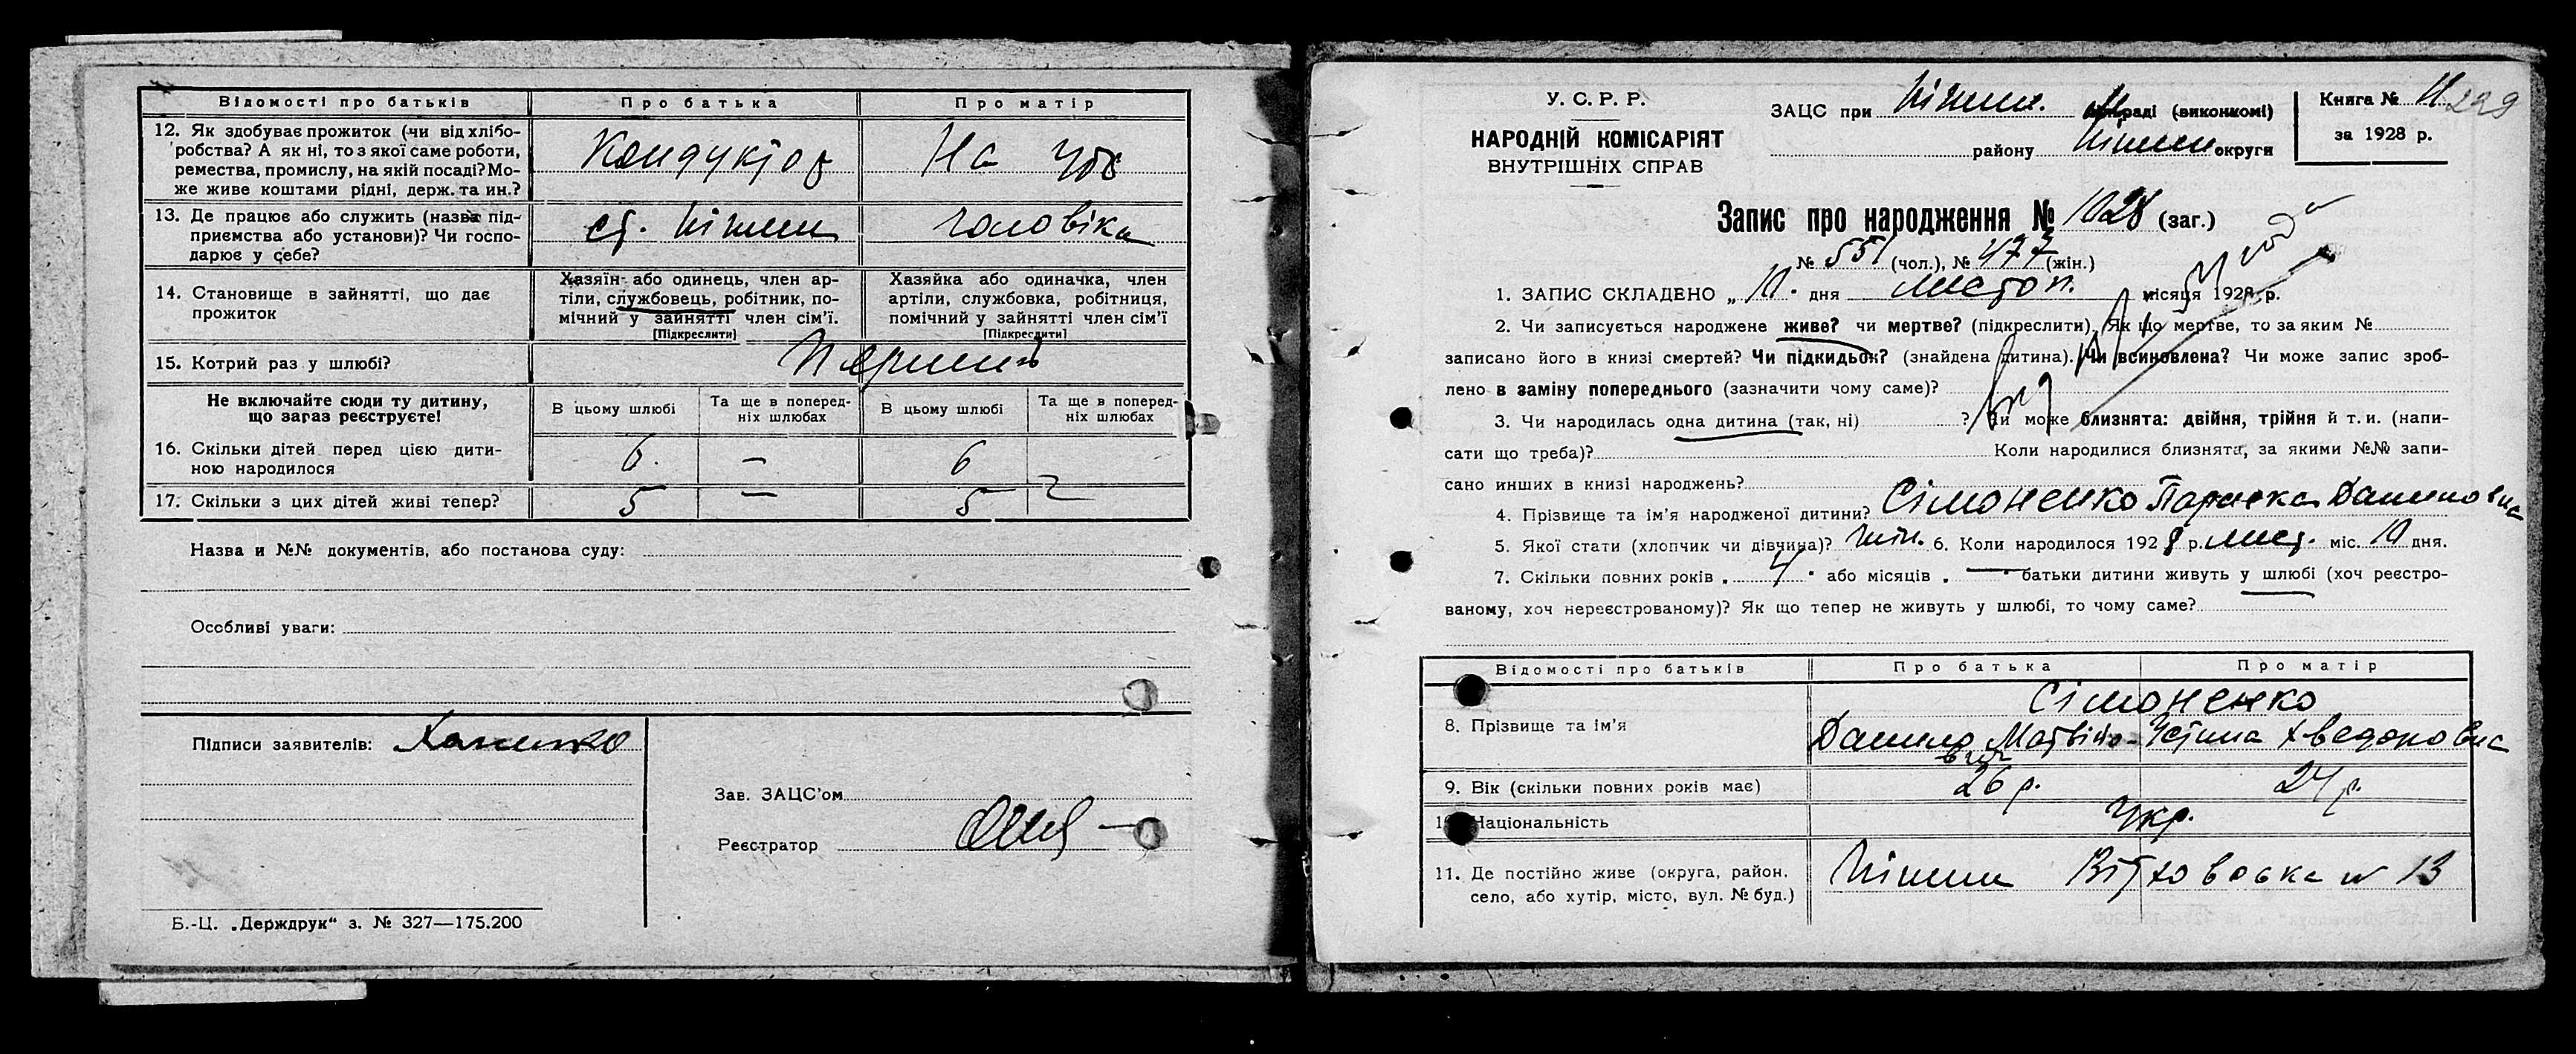 Відомості про батьків Про батька Про матір
12. Як здобуває прожиток (чи від хлібо-
робства? А як ні, то з якої саме роботи,
ремества, промислу, на якій посаді? Мо-
же живе коштами рідні, держ. та ин.?
Кондуктор На утр
13. Де працює або служить (назва під-
приємства або установи)? Чи госпо-
дарює у себе?
ст. Ніжин чоловіка
14. Становище в зайнятті, що дає
прожиток
Хазяїн або одинець, член ар-
тіли, службовець, робітник, по-
мічний у зайнятті член сім'ї.
[Підкреслити]
Хазяйка або одиначка, член
артіли, службовка, робітниця,
помічний у зайнятті член сім'ї
[Підкреслити]
15. Котрий раз у шлюбі? Перший
Не включайте сюди ту дитину,
що загаз реєструєте!
В цьому шлюбі Та ще в поперед-
ніх шлюбах В цьому шлюбі Та ще в поперед-
ніх шлюбах
16. Скільки дітей перед цією дити-
ною народилося
6. — 6
17. Скільки з цих дітей живі тепер? 5 — 5
Назва и №№ документів, або постанова суду:
Особливі уваги:
Підписи заявителів:
Зав. ЗАЦС'ом
Реєстратор
Б.-Ц. „Держдрук“ з. № 327—175.200
У. С. Р. Р.
НАРОДНІЙ КОМІСАРІЯТ
ВНУТРІШНІХ СПРАВ
ЗАЦС при Ніжин. раді (виконкомі)
району Ніжин округи
Книга № 11 229
за 1928 р.
Запис про народження № 1028 (заг.)
№ 551 (чол.), № 477 (жін.)
1. ЗАПИС СКЛАДЕНО „ 10. дня листоп. місяця 1928 р.
2. Чи записується народжене живе? чи мертве? (підкреслити). Як що мертве, то за яким №
записано його в книзі смертей? Чи підкидьок? (знайдена дитина). Чи всиновлена? Чи може запис зроб-
лено в заміну попереднього (зазначити чому саме)?
3. Чи народилась одна дитина (так, ні) ? Чи може близнята: двійня, трійня й т. и. (напи-
сати що треба)? Коли народилися близнята, за якими №№ запи-
сано инших в книзі народжень?
4. Прізвище та ім'я народженої дитини? Сімоненко Параска Даниловна
5. Якої стати (хлопчик чи дівчина)? жін. 6. Коли народилося 1928 р. лист. міс. 10 дня.
7. Скільки повних років „ 4 “ або місяців „ — “ батьки дитини живуть у шлюбі (хоч реєстро-
ваному, хоч нереєстрованому)? Як що тепер не живуть у шлюбі, то чому саме?
Відомості про батьків Про батька Про матір
Сімоненко
8. Прізвище та ім'я Данило Матвійо- Устина Хведоровна
вич
9. Вік (скільки повних років має) 26 р. 24 р.
10. Національність Укр.
11. Де постійно живе (округа, район,
село, або хутір, місто, вул. № буд.)
Ніжин № 13